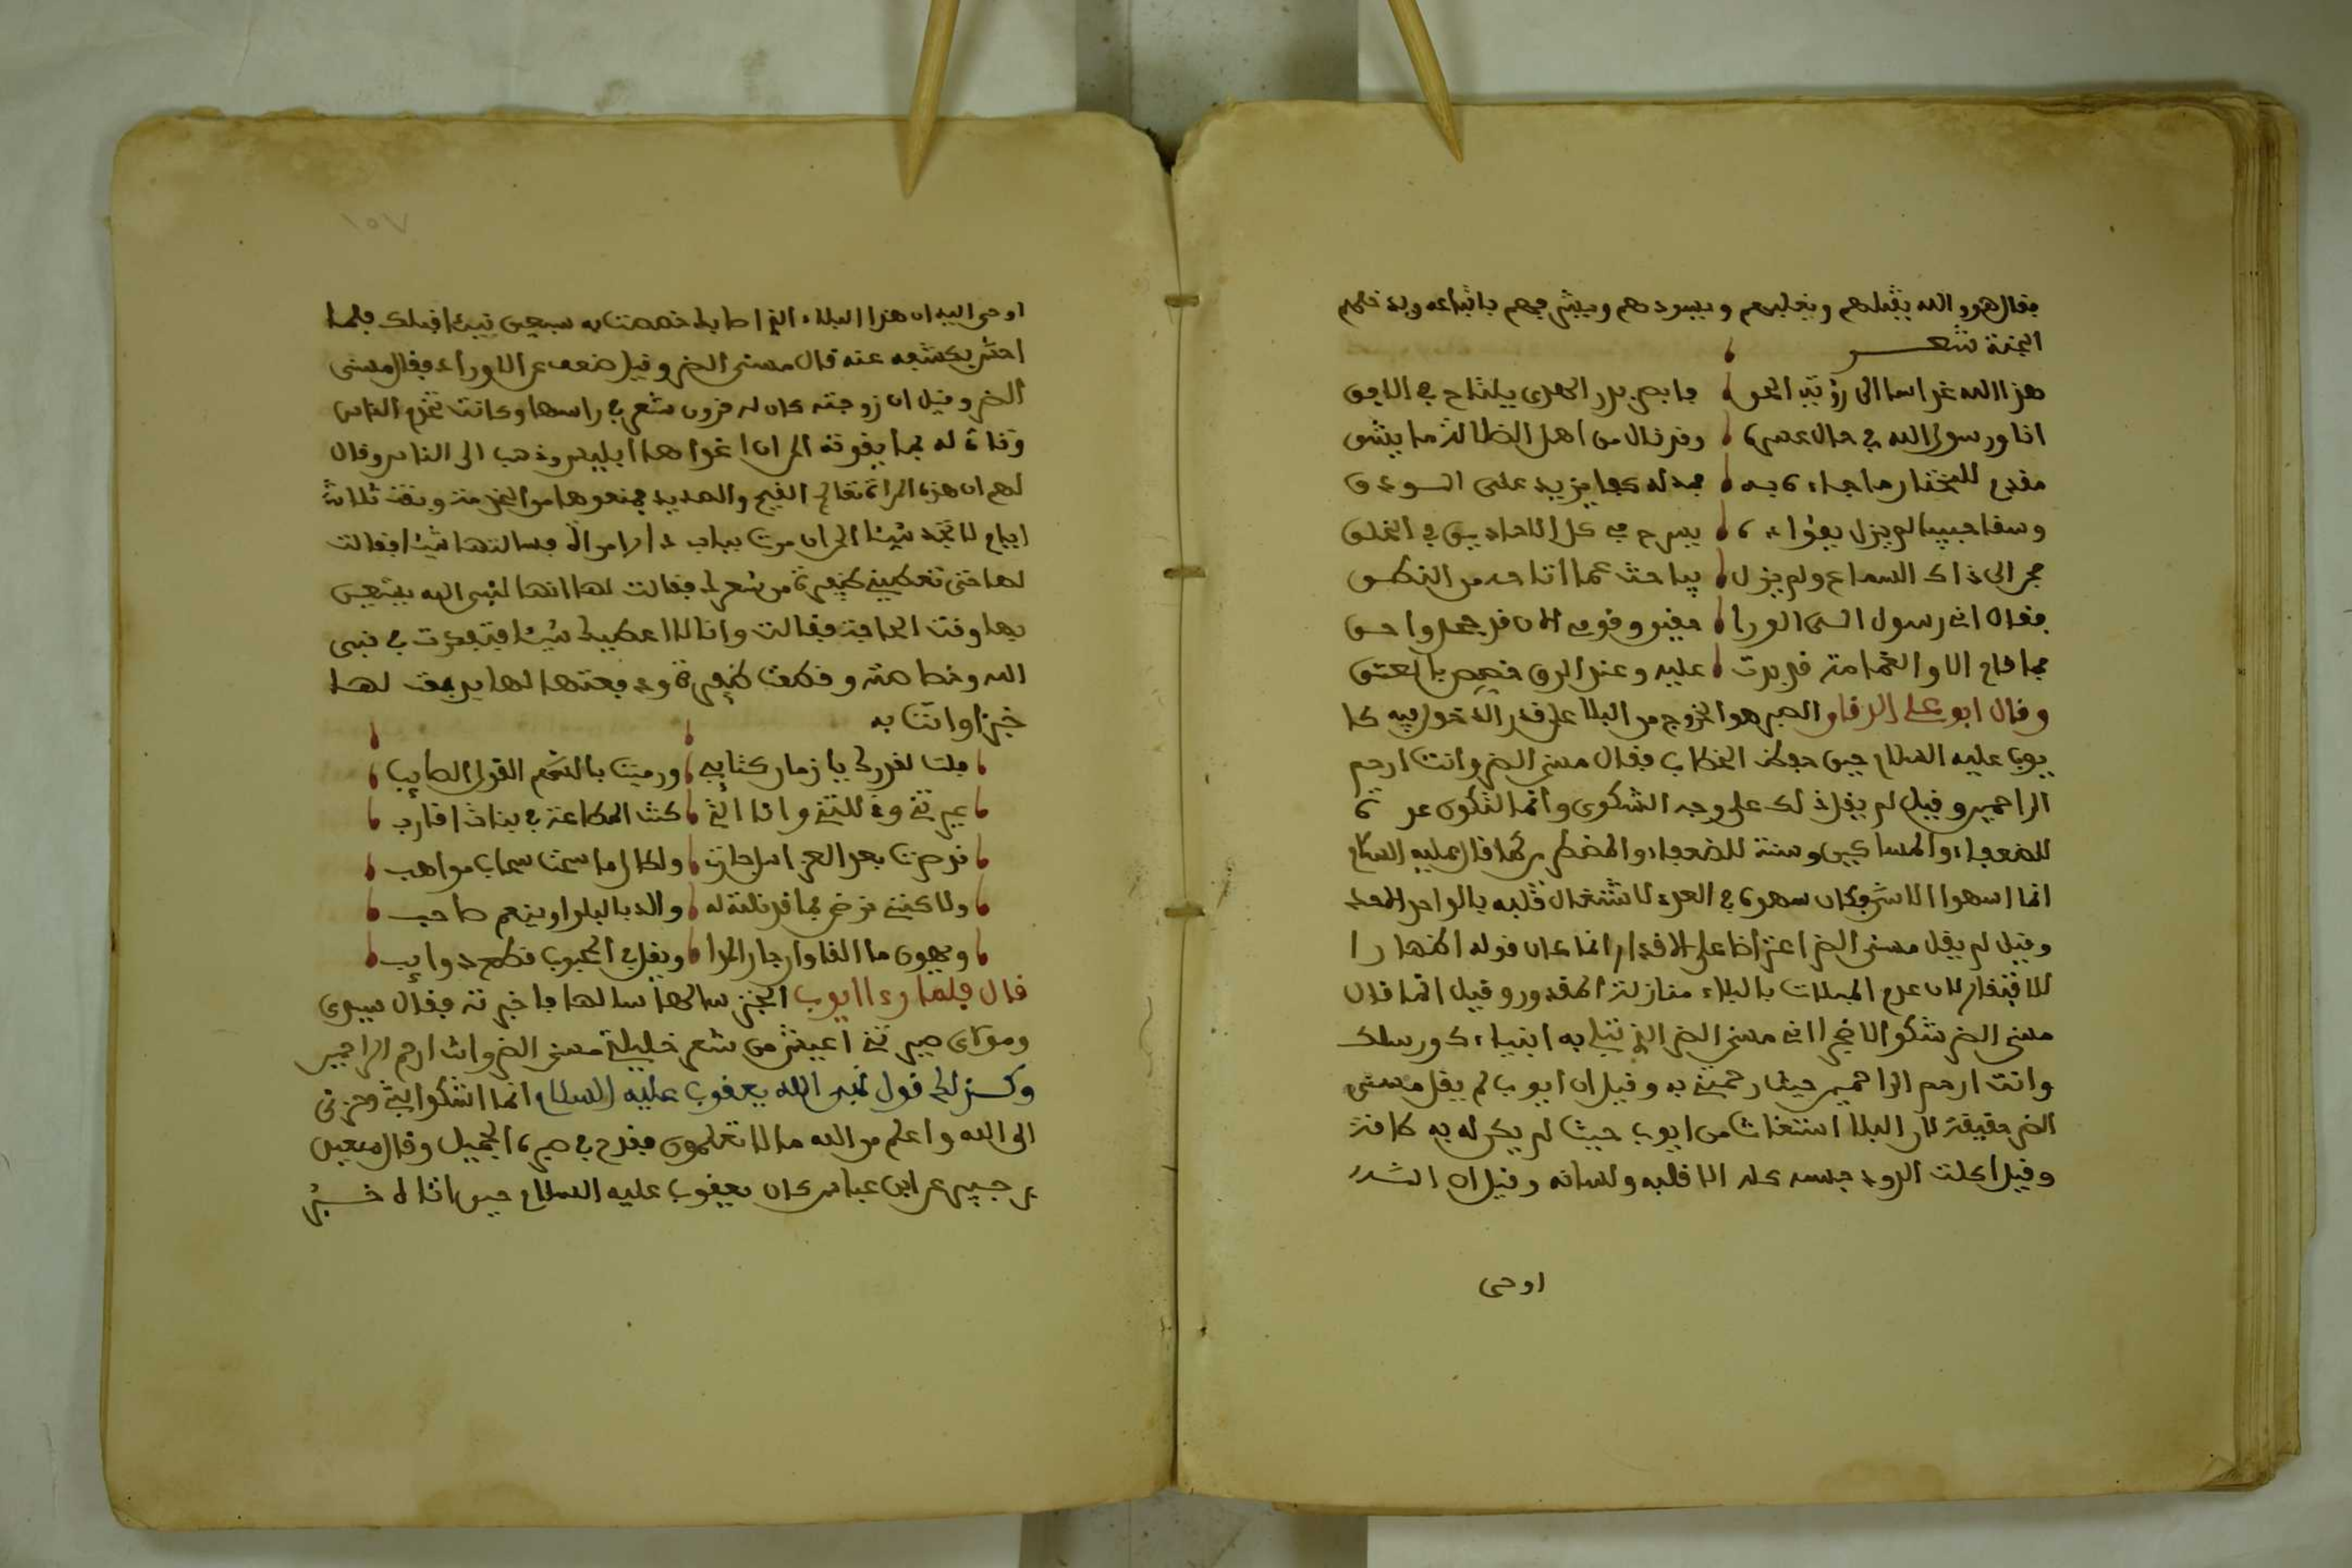 فقال هو والله يقبلهم ويغلبهم ويسودهم ويبشرهم باتباعه ويدخلهم
الجنة شعر
هذا الله غدا سما الى رؤية الحق فابصر بدر الهدى يلتاح في الافق
اتا ورسول الله في حال وقد نال من اهل الضلالة ما يشق
فقدم للمختار ما جاء به
وسقا حبيبا لم يزل بفؤاده يسرح في كل الاحاديق في الخلق
فجر الى ذاك السماع ولم يزل يباحث عما اتا من النطق
فقال انى رسول الى الورا وقومى الان قد جهلوا حق
فما قام الا والغمامة قد بدت عليه وعند الرق خصص بالعتق
وقال ابو على الدقاق الصبر هو الخروج من البلا على قدر الدخول فيه كا
يوب عليه السلام حين حفظ الخطاب فقال مسنى الضر وانت ارحم
الراحمين وقيل لم يقل ذلك على وجه الشكوى وانما لتكون عد ة
للضعفاء والمساكين وسنة للضعفاء والمضطر كما قال عليه السلام
انما اسهوا لاسن فكان سهوه في العدد لاشتغال قلبه بالواحد الاحد
وقيل لم يقل مسنى الضر اعتراضا على الاقدار انما كان قوله اظهارا
للافتقار لان عدم المبلات بالبلاء منازلة المقدور وقيل انما قال
مسنى الضر شكوا لا ضجرا انى مسنى الضر الذى تبتلى به انبياءك ورسلك
وانت ارحم الراحمين حيث رحمتنى به وقيل ان ايوب لم يقل مسنى
الضر حقيقة لان البلا استغاث من ايوب حيث لم يكن له به طاقة
وقيل اكلت الدود جسده كله الا قلبه ولسانه وقيل ان الله
اوحى
١٥٧
اوحى اليه ان هذا البلاء الذى اصابك خصصت به سبعين نبيئا قبلك فلما
احس بكشفه عنه قال مسنى الضر وقيل ضعف عن الاوراد فقال مسنى
الضر وقيل ان زوجته كان له قرون شعر في راسها وكانت تخدم الناس
وتاتى له بما يقوته الى ان اغواها ابليس وذهب الى الناس وقال
لهم ان هذه المراة تعالج القيح والصديد فمنعوها من الخدمة وبقت ثلاثة
ايام لا تجد شيئا الى ان مرت بباب دار امراة فسالتها شيئا فقالت
لها حتى تعطينى ظفيرة من شعرك فقالت لها انها لنبى الله يستعين
بها وقت الحاجة فقالت وانا لا اعطيك شيئا فتفكرت في نبى
الله وخصاصته وقطعت ظفيرة ودفعتها لها فدفعت لها
خبزا واتت به
فلت لغدرك يا زمان كتايب ورميت بالسهم القوى الصايب
غير تنى وذللتنى وانا الذى كنت المطاعة في بنات اقارب
ولكال ما سمت سماب مواهب
ولاكننى نرضى بما قد نلته له والله بالبلوا وينعم صاحب
ويهون ما القا وان جار الهوا ويقل في المحبوب قطع ذوايب
قال فلما رءا ايوب الخبز سالها فاخبرته فقال سيدى
ومولاى صيرتنى اعيش من شعر خليلتى مسنى الضر وانت ارحم الراحمين
وكذلك قول نبى الله يعقوب عليه السلام انما اشكوا بثى وحزنى
الى الله واعلم من الله ما لا تعلمون فقدح في صبره الجميل وقال سعيد
بن جبير عن ابن عباس كان يعقوب عليه السلام حين اتاه خبر